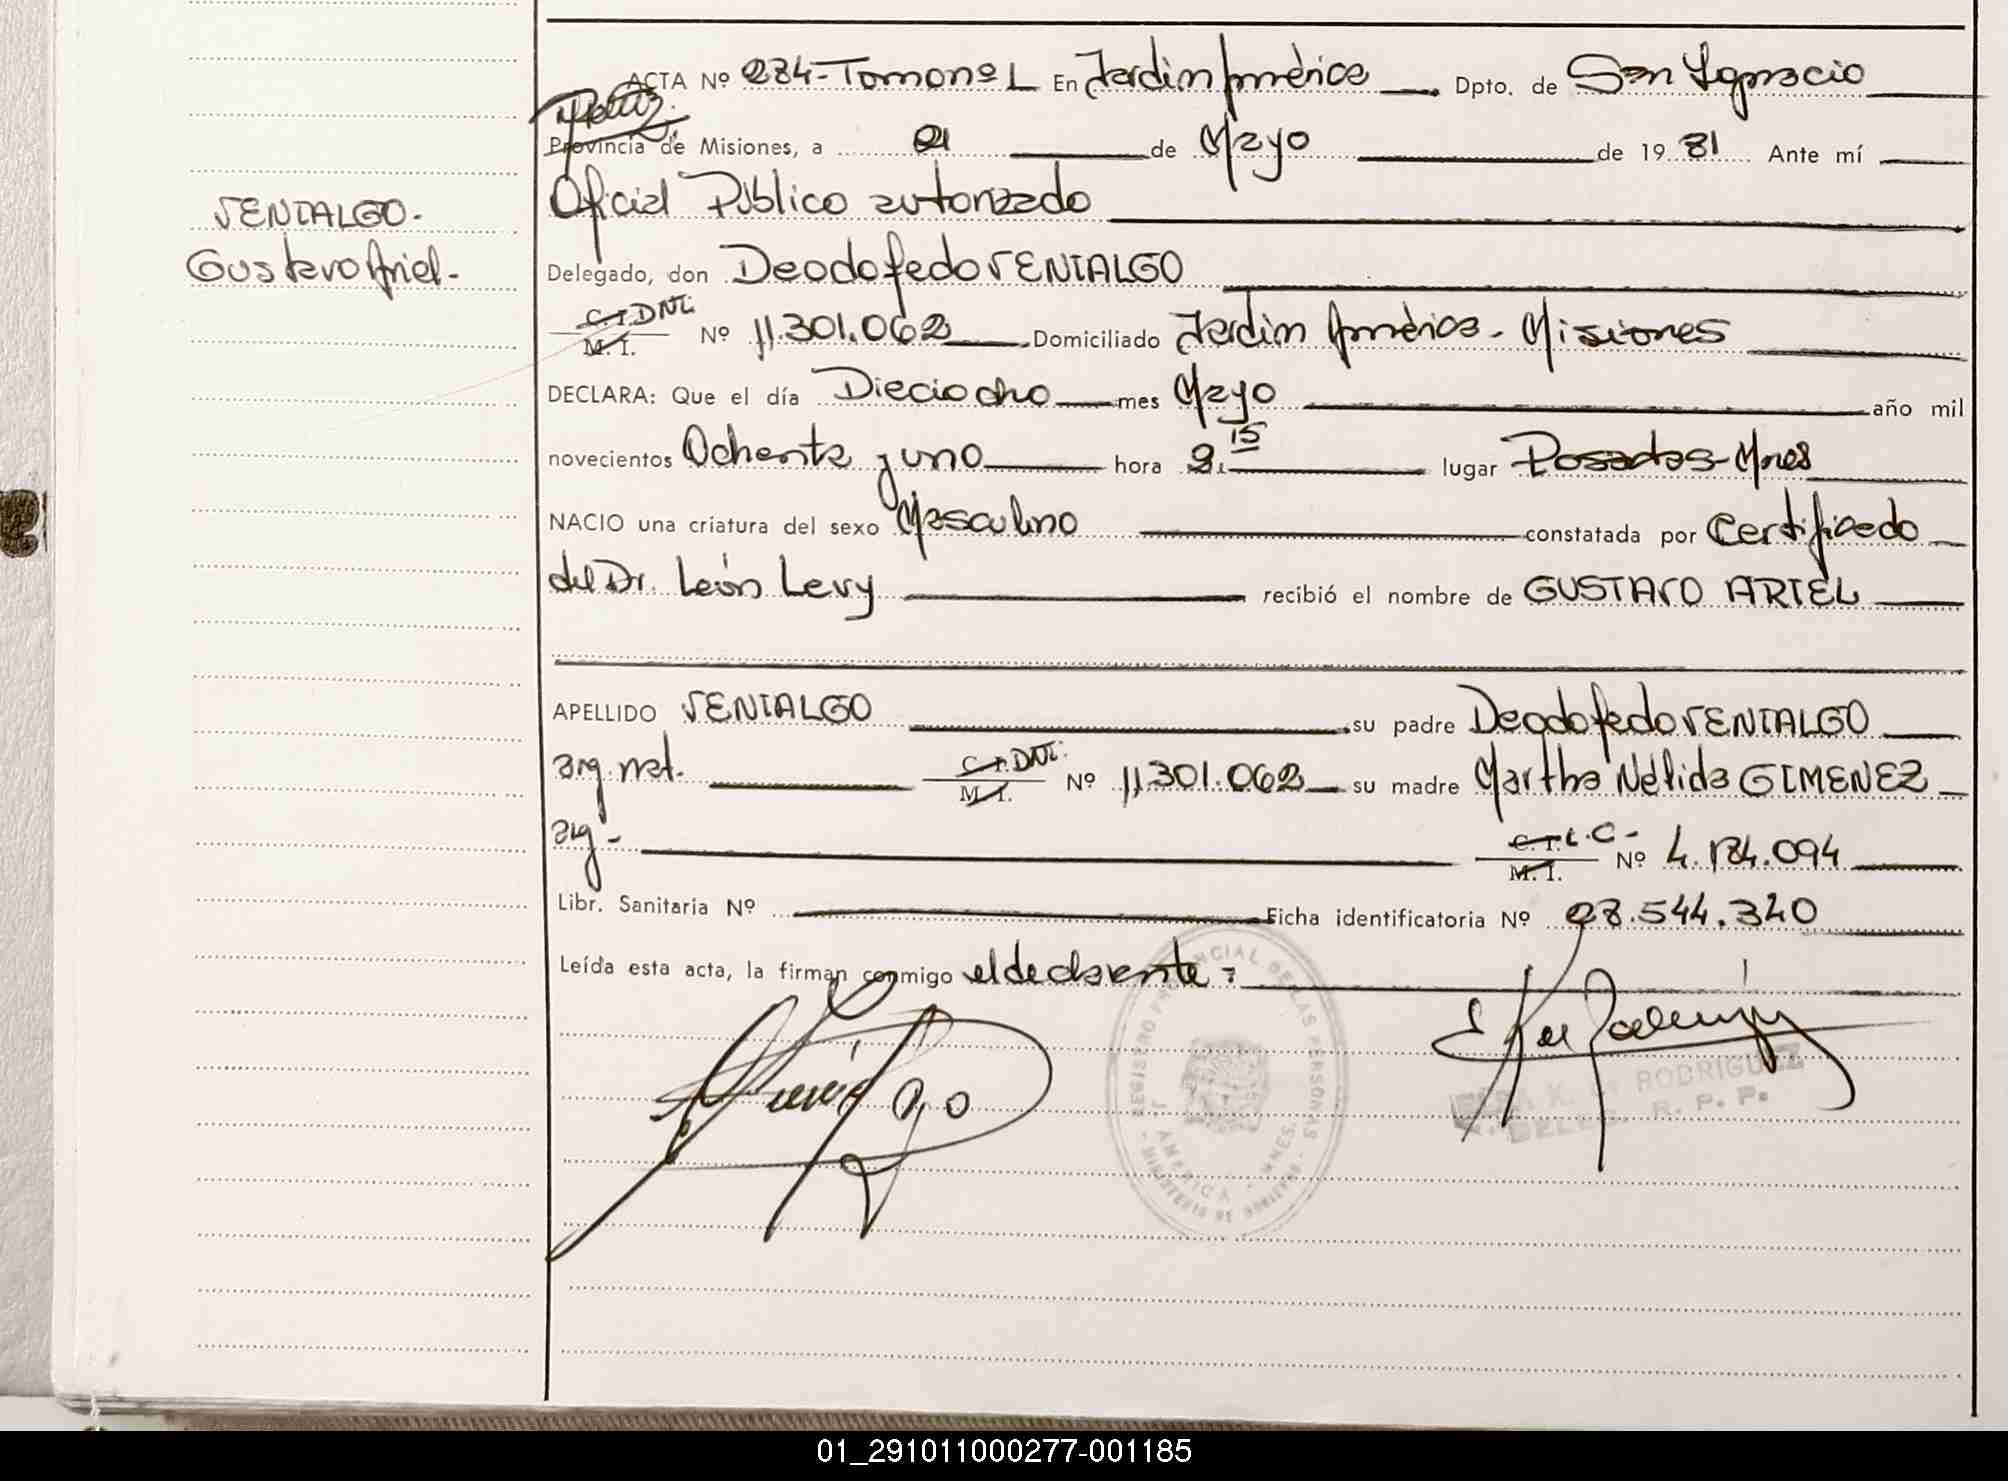 ACTA Nº 284-Tomo nº L En Jardin América Dpto. de San Ignacio
Provincia de Misiones, a 21 de Mayo de 1981 Ante mí
Oficial Público autorizado
VENIALGO.
Gustavo Ariel.-
Delegado, don Deodofedo VENIALGO
C.I. DNI. M. I. Nº 11.301.062 Domiciliado Jardin América - Misiones
DECLARA: Que el día Dieciocho mes Mayo año mil
novecientos Ochenta y uno hora 8.15 lugar Posadas-Mnes
NACIO una criatura del sexo Masculino constatada por Certificado
del Dr. León Levy recibió el nombre de GUSTAVO ARIEL
APELLIDO VENIALGO su padre Deodofedo VENIALGO
arg. nat. C.I. DNI. M. I. Nº 11.301.062 su madre Martha Nélida GIMENEZ
arg.- C.I. L.C- M. I. Nº 4.184.094
Libr. Sanitaria Nº Ficha identificatoria Nº 28.544.340
Leída esta acta, la firman conmigo el declarante:
REGISTRO PROVINCIAL DE LAS PERSONAS
J. AMERICA - MNES.
- MINISTERIO DE GOBIERNO -
K. RODRIGUEZ
DELEG. R. P. P.
01_291011000277-001185